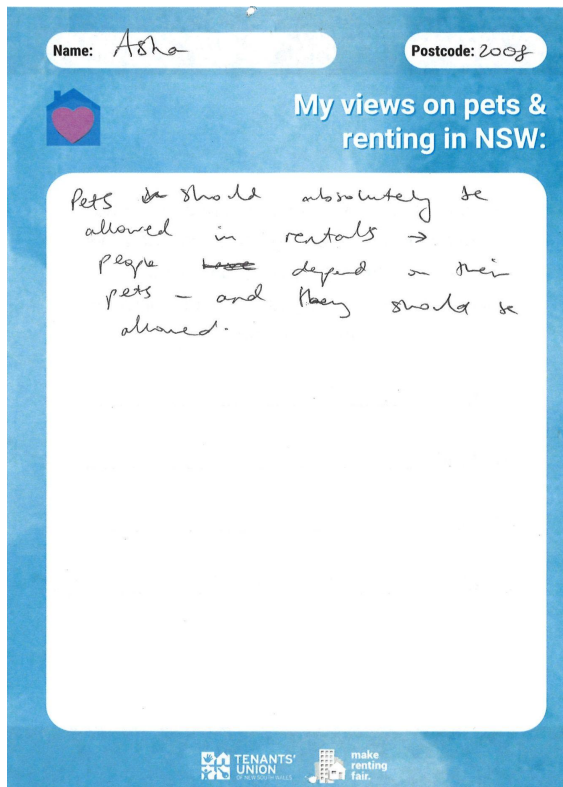 Name: Asha
Postcode: 2008
My views on pets &
renting in NSW:
Pets should absolutely be
allowed in rentals →
people depend on their
pets - and they should be
allowed.
TENANTS'
UNION
OF NEW SOUTH WALES
make
renting
fair.